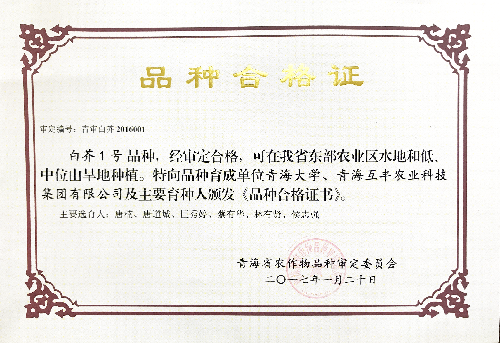 品种合格证
审定编号：青审白芥2016001
白芥1号品种，经审定合格，可在我省东部农业区水地和低、
中位山旱地种植。特向品种育成单位青海大学、青海互丰农业科技
集团有限公司及主要育种人颁发《品种合格证书》。
主要选育人：唐道城、蔡有华、林有贤、侯志强
青海省农作物品种审定委员会
二〇一七年一月二十日